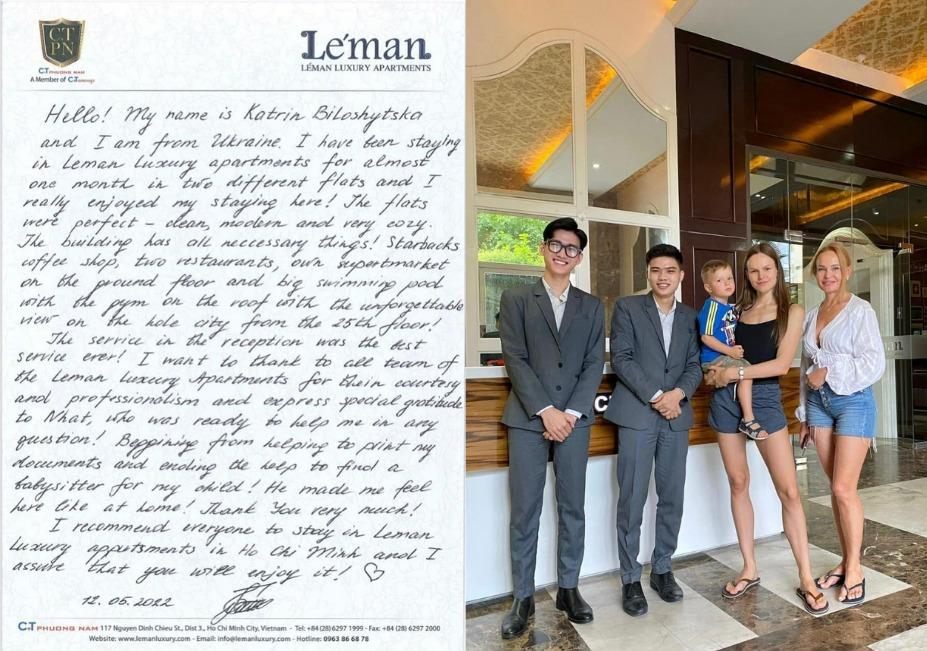 CT
PN
C.T PHUONG NAM
A Member of C.T Group
Le'man
LÉMAN LUXURY APARTMENTS
Hello! My name is Katrin Biloshytska
and I am from Ukraine. I have been staying
in Leman Luxury apartments for almost
one month in two different flats and I
really enjoyed my staying here! The flats
were perfect – clean, modern and very cozy.
The building has all neccessary things! Starbacks
coffee shop, two restaurants, own supertmarket
on the ground floor and big swimming pool
with the gym on the roof with the unforgettable
view on the hole city from the 25th floor!
The service in the reception was the best
service ever! I want to thank to all team of
the Leman Luxury Apartments for their courtesy
and professionalism and express special gratitude
to Nhat, who was ready to help me in any
question! Beggining from helping to print my
documents and ending the help to find a
babysitter for my child! He made me feel
here like at home! Thank You very much!
I recommend everyone to stay in Leman
Luxury appartsments in Ho Chi Minh and I
assure that you will enjoy it! ♡
12.05.2022
C.T PHUONG NAM 117 Nguyen Dinh Chieu St., Dist 3., Ho Chi Minh City, Vietnam - Tel: +84 (28) 6297 1999 - Fax: +84 (28) 6297 2000
Website: www.lemanluxury.com - Email: info@lemanluxury.com - Hotline: 0963 86 68 78
C